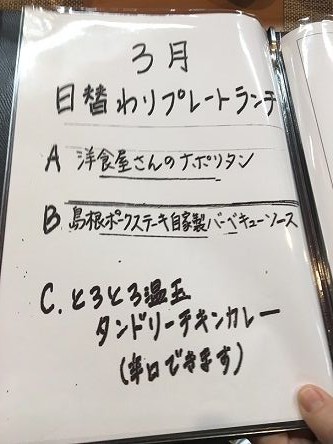 3月
日替わりプレートランチ
A 洋食屋さんのナポリタン
B 島根ポークステーキ自家製バーベキューソース
C. とろとろ温玉
タンドリーチキンカレー
(辛口できます)